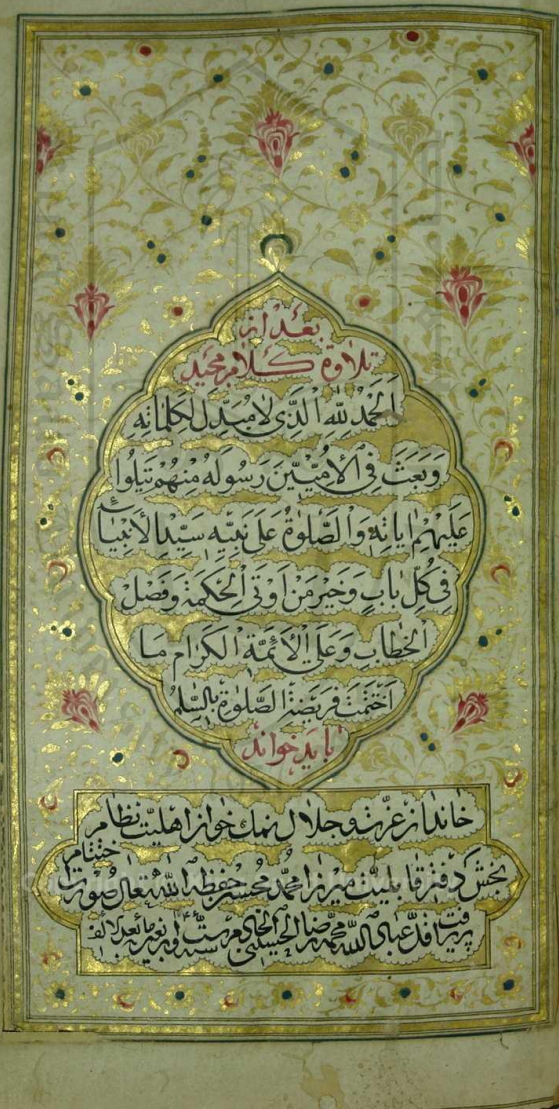 بعد از
تلاوة كلام مجيد
اَلْحَمْدُ لِلّٰهِ اَلَّذى لا مُبَدِّلَ لِكَلِماتِه
وَبَعَثَ فِى الْاُمِّيّينَ رَسُولَهُ مِنْهُمْ يَتْلُوا
عَلَيْهِمْ اياتِهِ وَالصَّلوٰةُ عَلى نَبِيِّهِ سَيِّدِ الْاَنْبِياءِ
فى كُلِّ بابٍ وَخَيْرِ مَنْ اُوتِىَ الْحِكْمَةَ وَفَصْلَ
الْخِطابِ وَعَلَى الْاَئِمَّةِ الْكِرامِ ما
اخْتُتِمَتْ فَريضَةُ الصَّلوٰةِ بِالسَّلٰمِ
بايد خواند
خاندان عزت و جلال نمك خوان اهليت نظام
بخش دفتر قابليت ميرزا محمد محسن حفظه الله تعالى صورت اختتام
پذيرفت اقل عباد الله محمد رضا الحسينى سنه